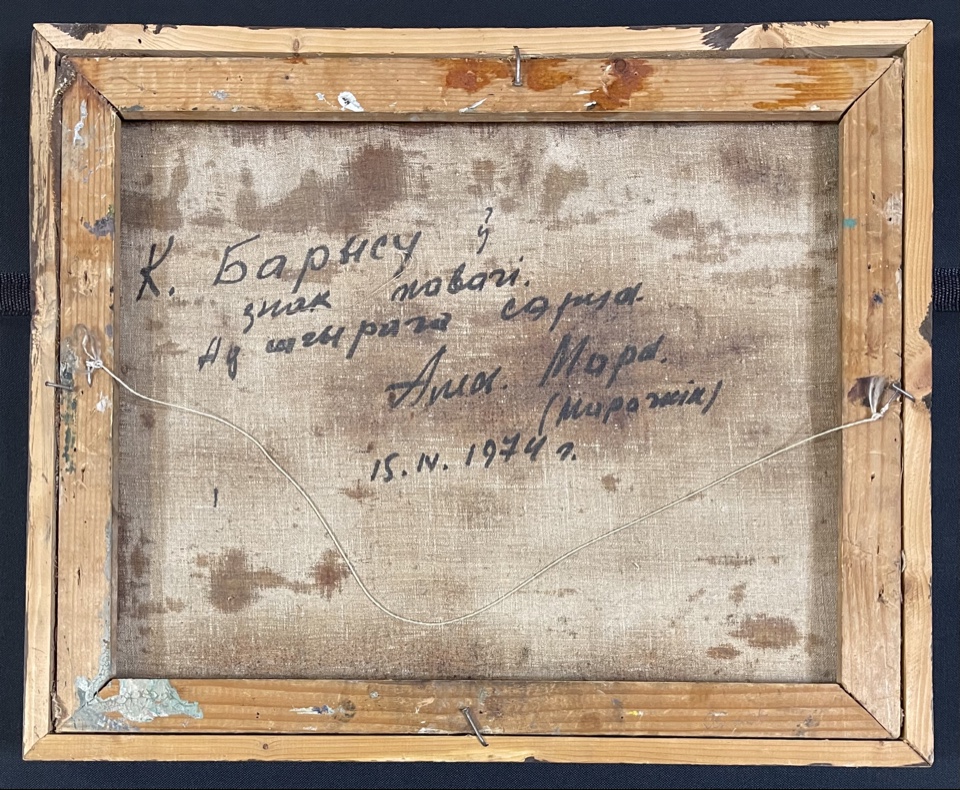 К. Барысу ў
знак павагі.
Ад шчырага сэрца.
Мара.
(Марачкін)
15. IV. 1974 г.